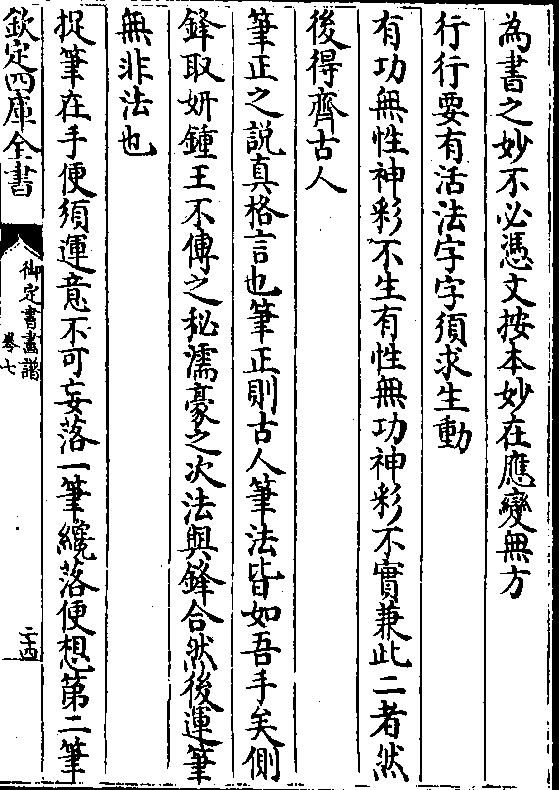 為書之妙不必憑文按本妙在應變無方
行行要有活法字字須求生動
有功無性神彩不生有性無功神彩不實兼此二者然
後得齊古人
筆正之說真格言也筆正則古人筆法皆如吾手矣側
鋒取妍鍾王不傳之秘濡豪之次法與鋒合然後運筆
無非法也
捉筆在手便須運意不可妄落一筆纔落便想第二筆
欽定四庫全書
御定書畫譜
卷七
二十四